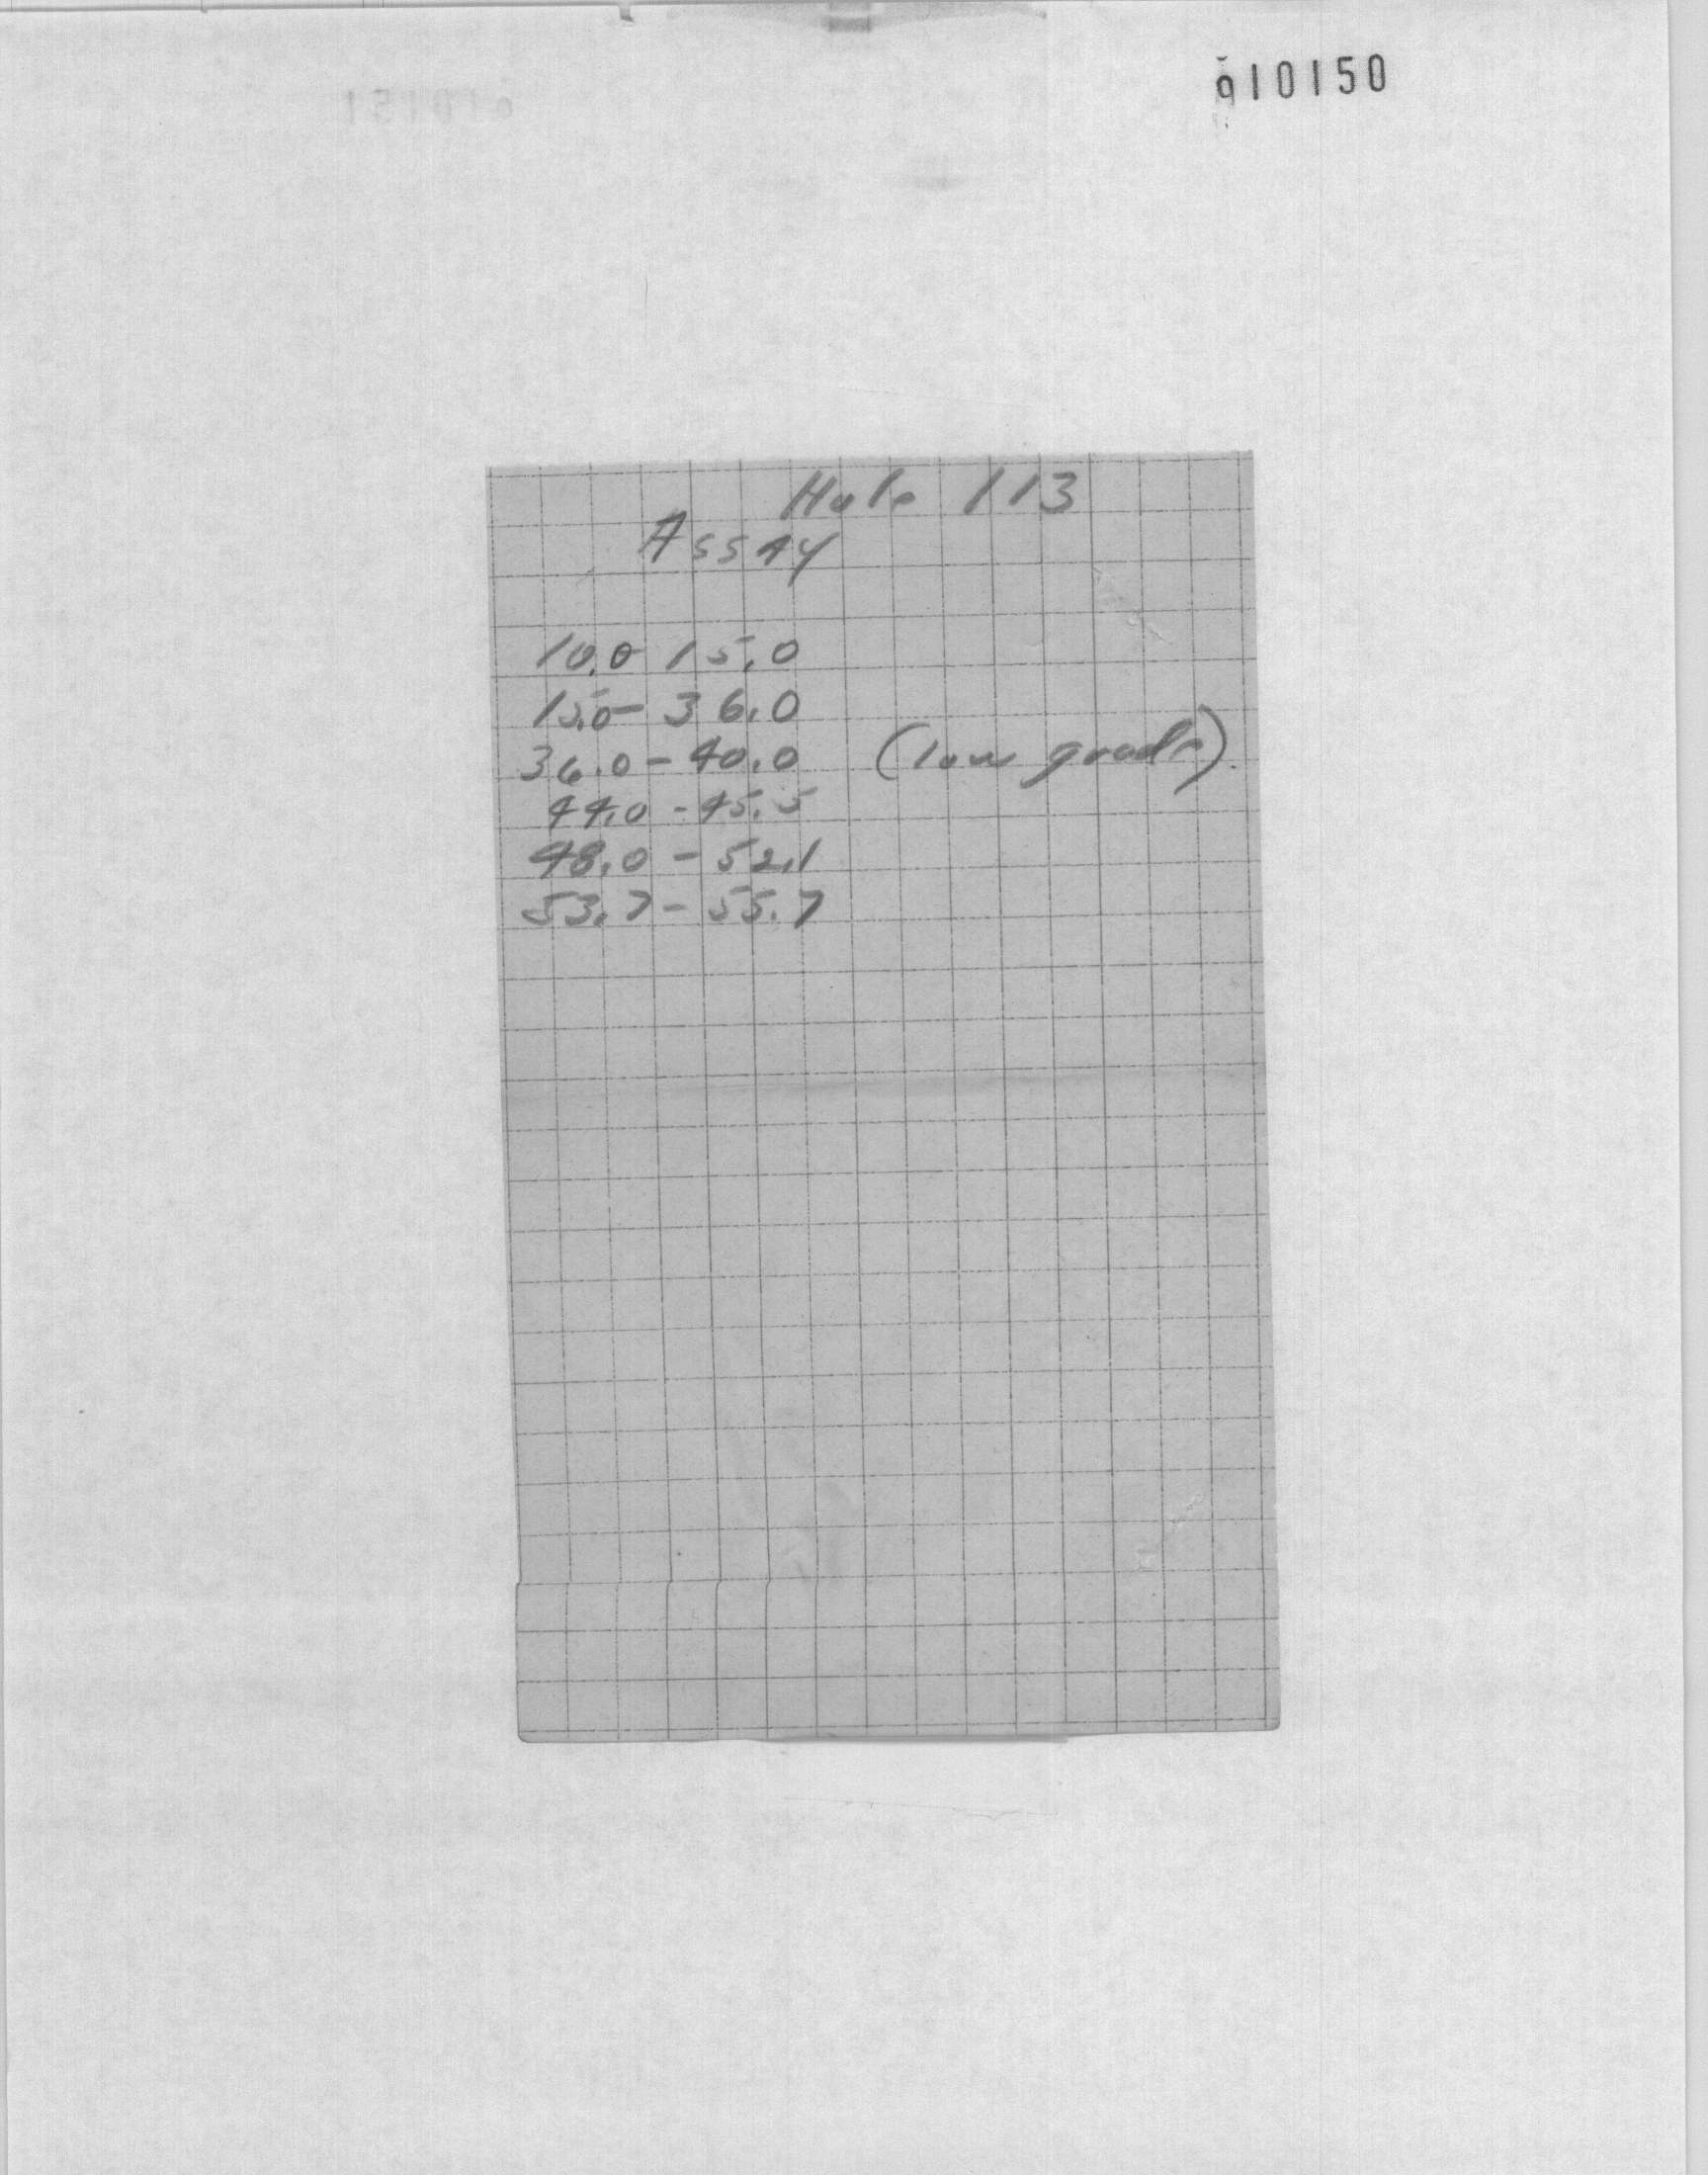 010150
Hole 113
Assay
10.0-15.0
15.0-36.0
36.0-40.0 (low grade).
44.0-45.5
48.0-52.1
53.7-55.7